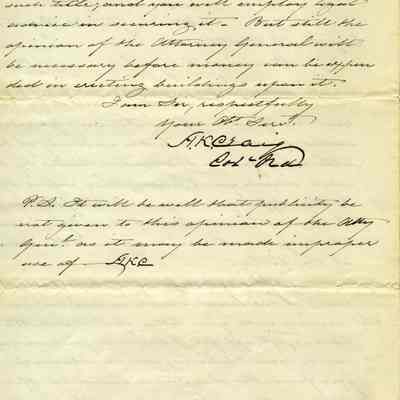 such title, and you will employ legal
advice in securing it. But still the
opinion of the Attorney General will
be necessary before money can be expen
ded in erecting buildings upon it.
I am Sir, respectfully
Your Obt Servt.
H K Craig
Col. Ord
P.S. It will be well that publicity be
not given to this opinion of the Atty
Genl. as it may be made improper
use of HKC